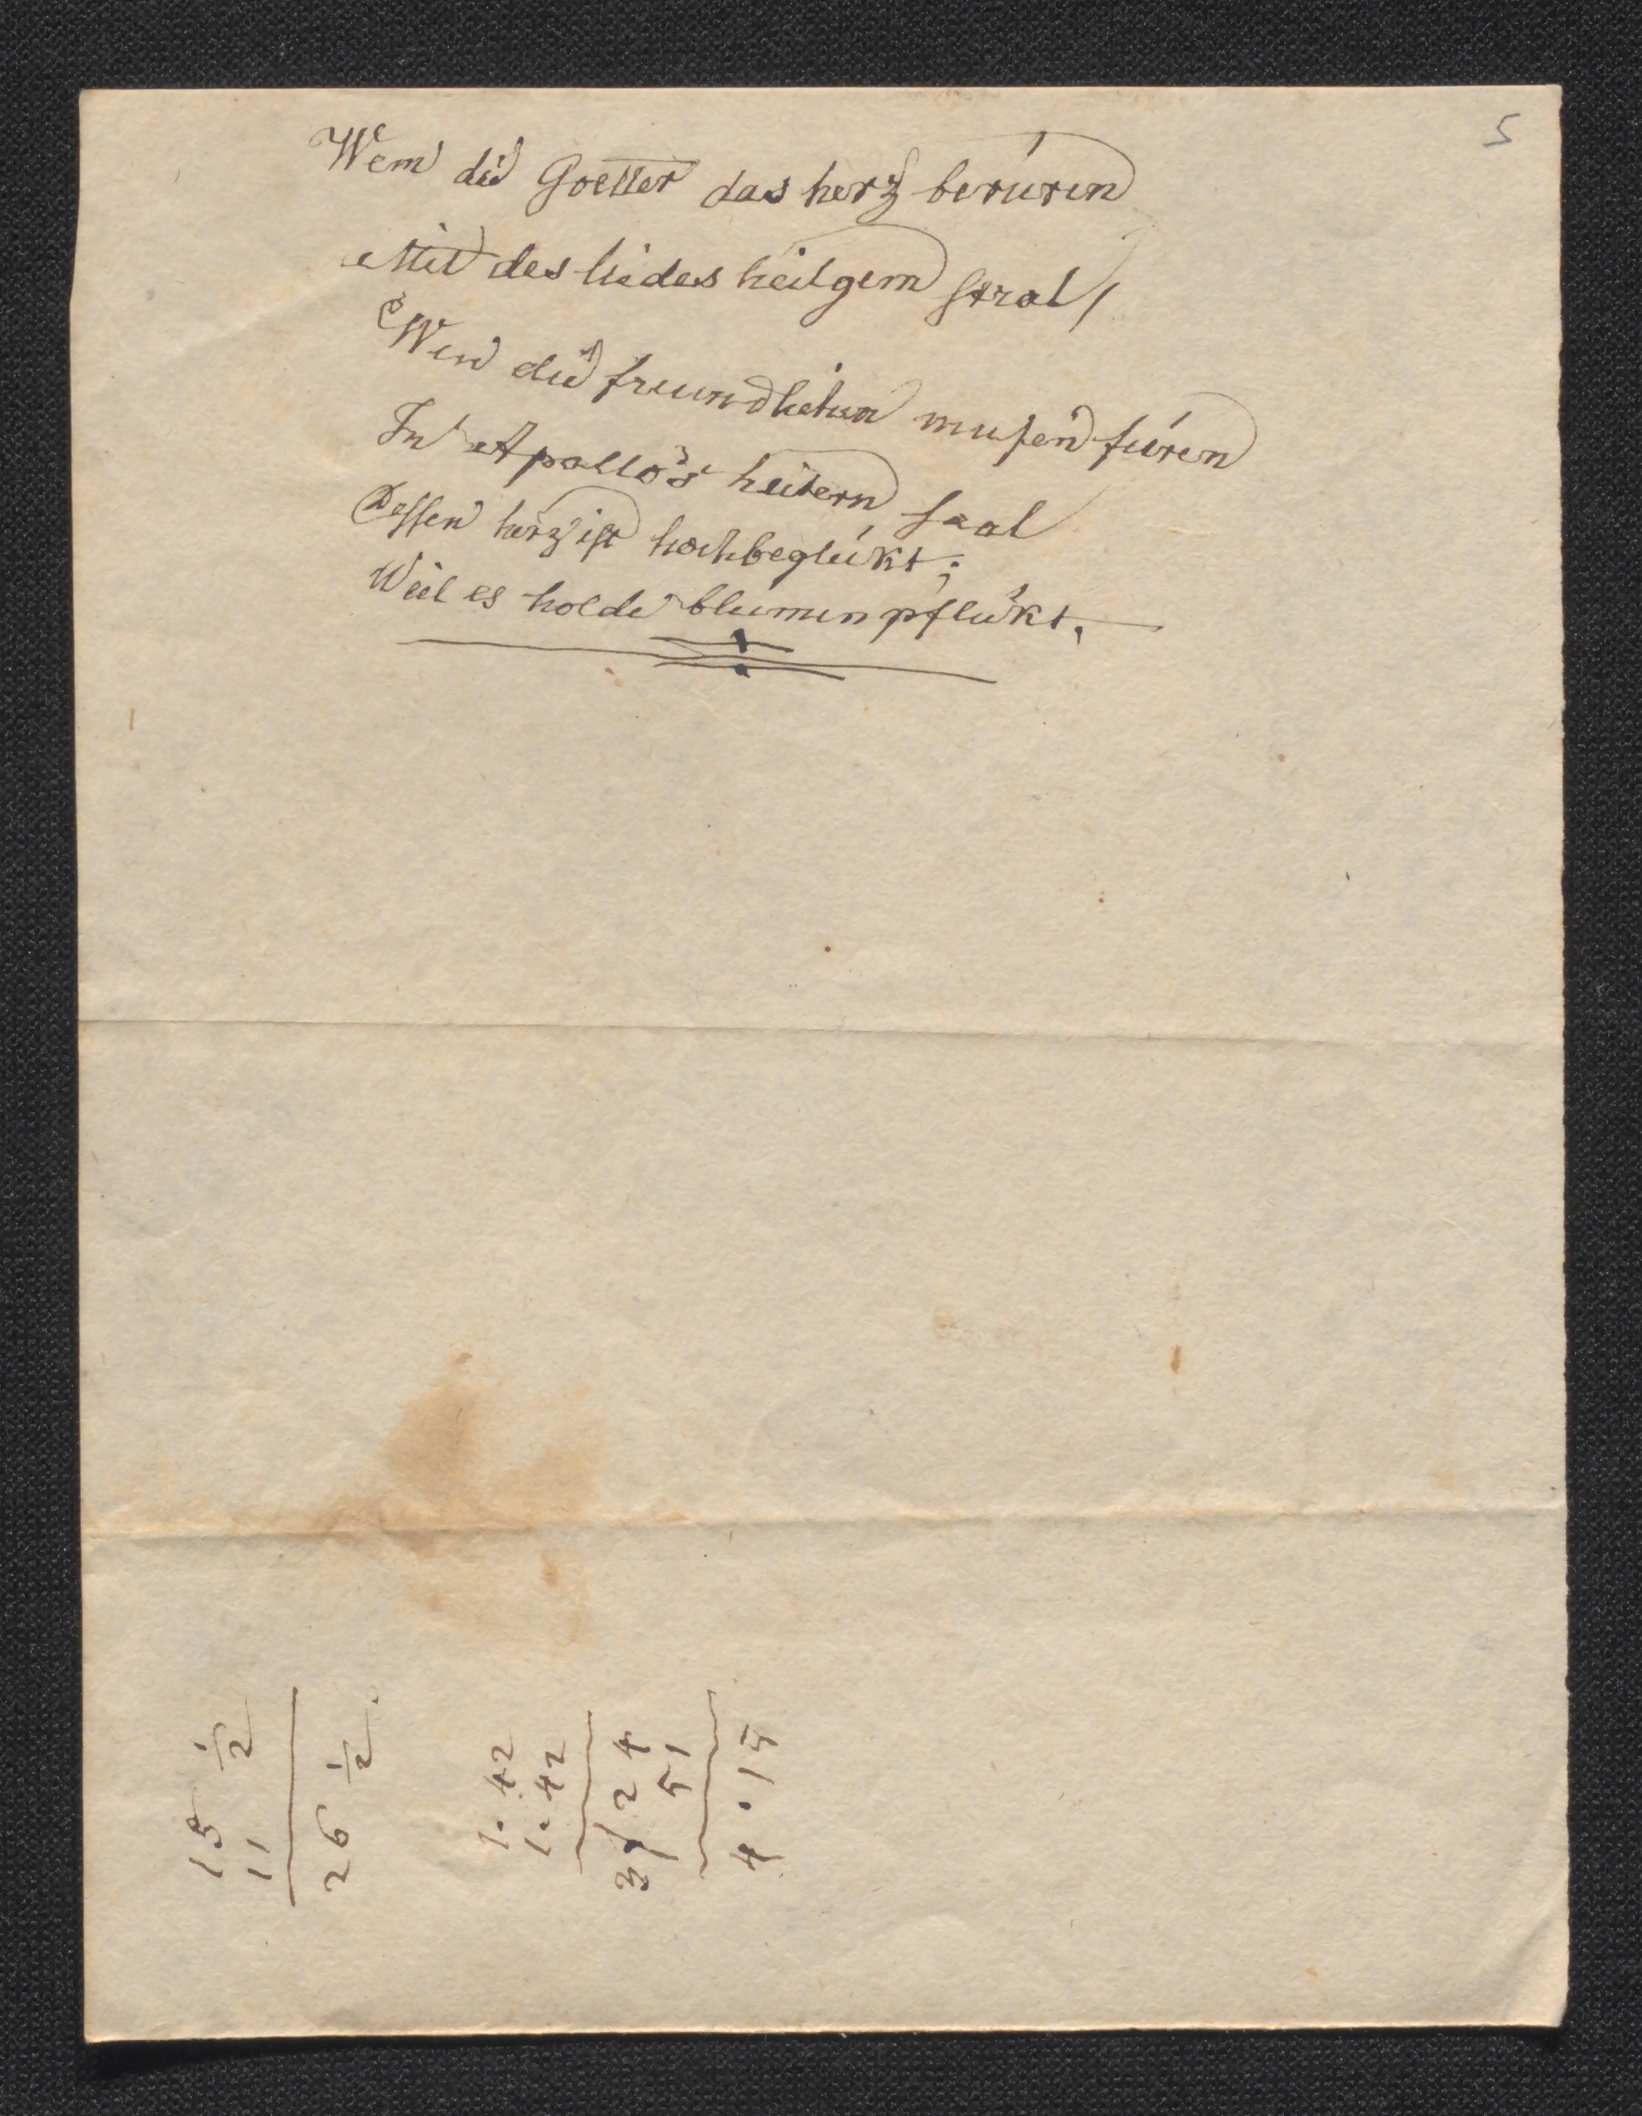 5
Wem die Goetter das herz berüren
Mit des liedes heilgem stral,
Wen die freundlichen musen füren
In Apollo's heitern saal
Dessen herz ist hochbeglükt;
Weil es holde blumen pflükt.
15 1/2
11
26 1/2.
1. 42
1. 42
3/24
51
4.15